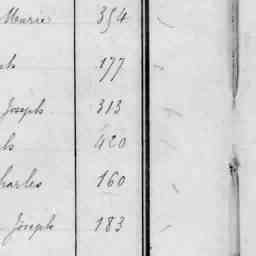 Marie 354
ph 177
Joseph 313
ph 420
Charles 160
Joseph 183